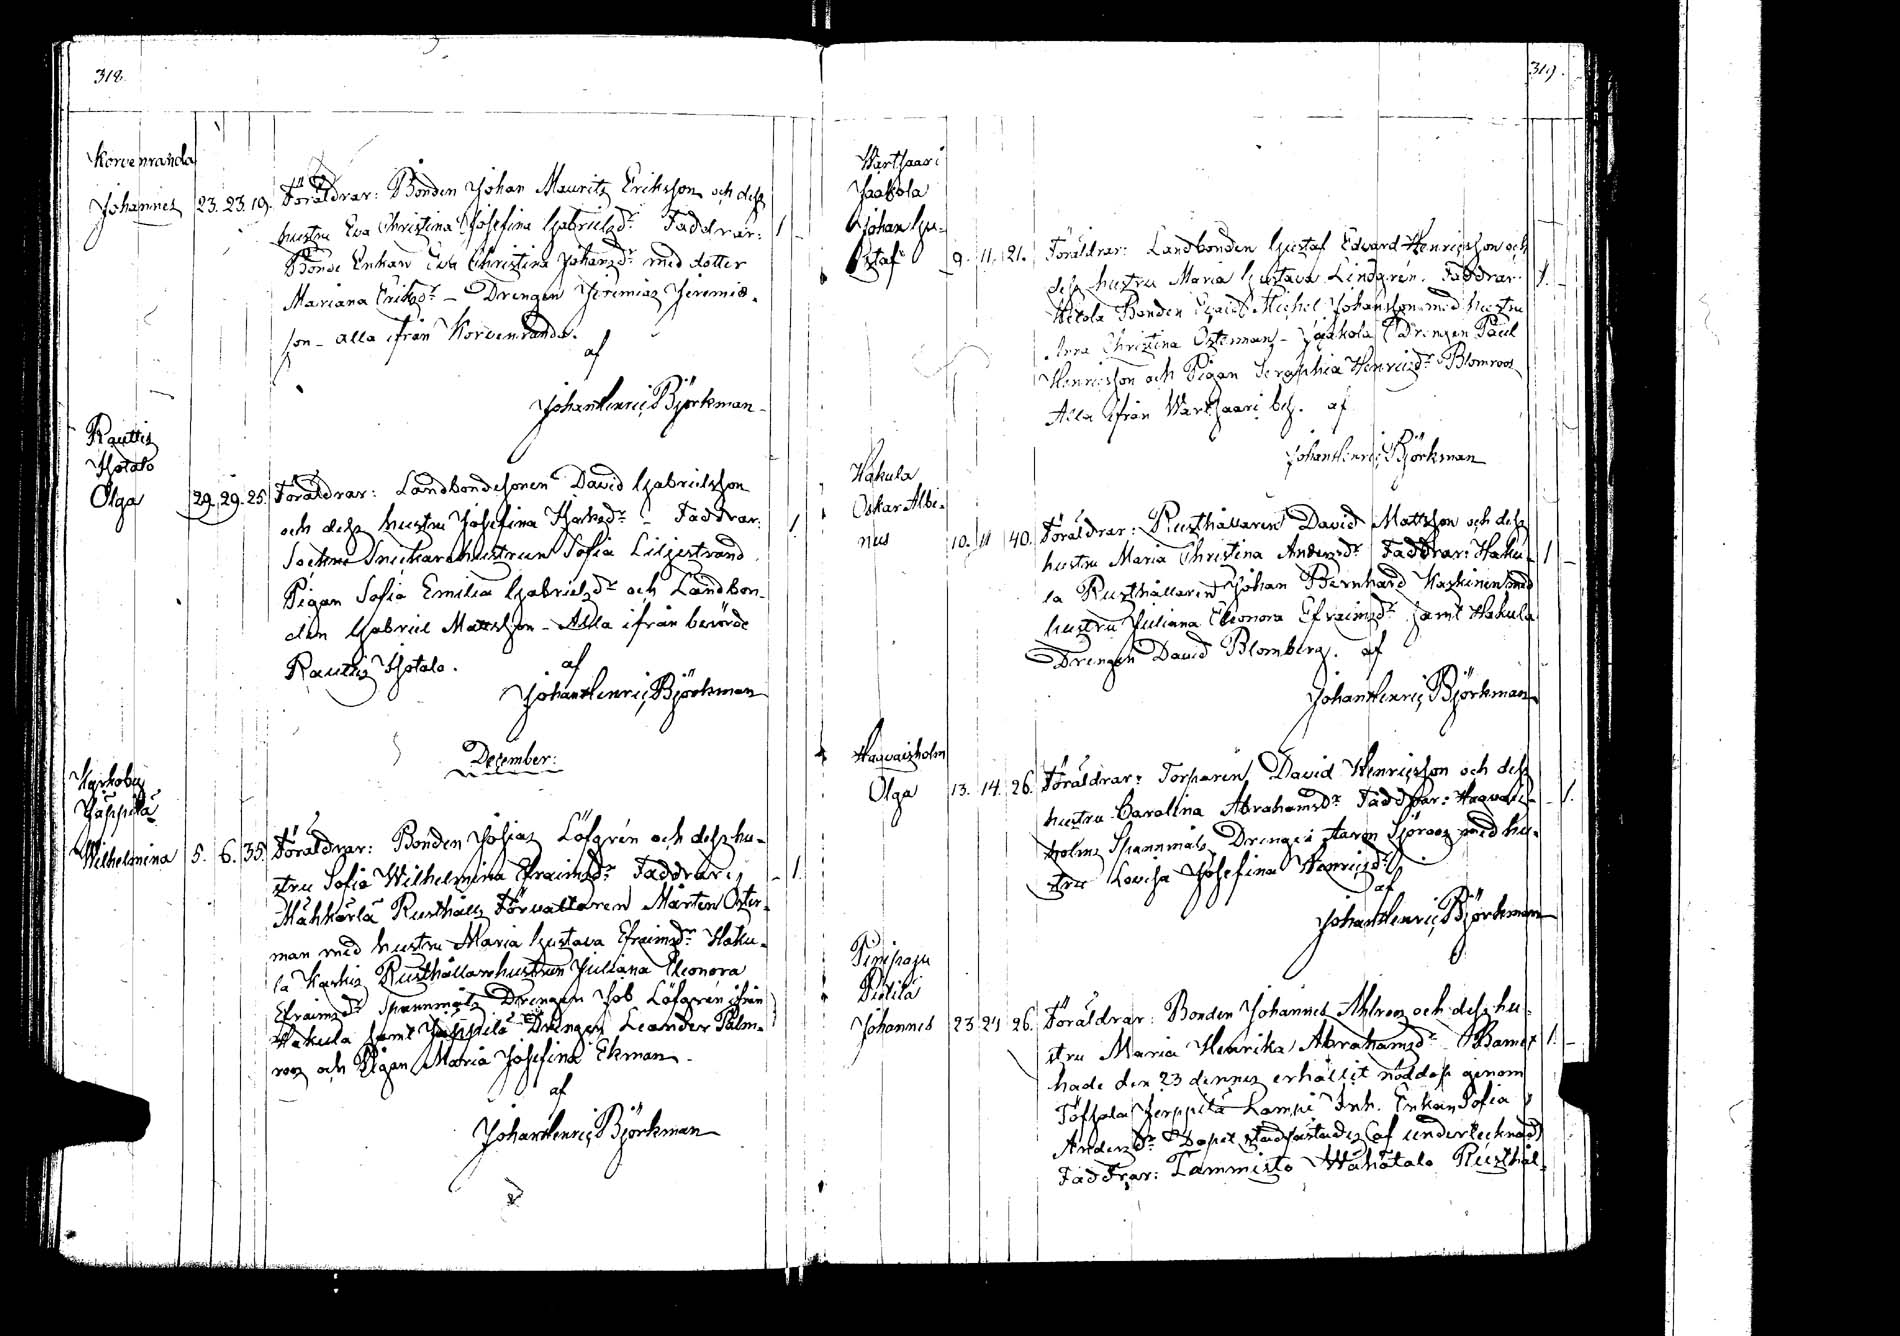 318.
Korvenranda
Johannes 23. 23. 19. Föräldrar: Bonden Johan Mauritz Eriksson och dess
hustru Eva Christina Josefina Gabrielsdr Faddrar: 1 -
Bonde Enkan Eva Christina Johansdr med dotter
Mariana Eriksdr - Drengen Jeremias Jeremias-
son - alla ifrån Korvenranda.
af
Johan Henric Björkman
Rauttis
Olga 29. 29. 25. Föräldrar: Landbondesonen David Gabrielsson
och dess hustru Josefina Isaksdr - Faddrar: 1.
Sockne Snickarehustrun Sofia Liljestrand
Pigan Sofia Emilia Gabrielsdr och Landbon-
den Gabriel Mattsson - Alla ifrån berörde
Rauttis
af
Johan Henric Björkman
December:
Karkoby
Jäppilä
Wilhelmina 5. 6. 35. Föräldrar: Bonden Josias Löfgrén och dess hu-
stru Sofia Wilhelmina Efraimsdr Faddrar: - 1.
Mähkärlä Rusthålls Förvaltaren Mårten Öster-
man med hustru Maria Gustava Efraimsdr Haku-
la Karkis Rusthållarehustrun Juliana Eleonora
Efraimsdr Spannmåls Drengen Job Löfgrén ifrån
Hakula samt Jäppilä Drengen Leander Palm-
roos och Pigan Maria Josefina Ekman -
af
Johan Henric Björkman
319.
Wartsaari
Jaakola
Johan Gu-
staf 9. 11. 21. Föräldrar: Landbonden Gustaf Edvard Henricsson och
dess hustru Maria Gustava Lindgrén. Faddrar: 1. -
Bonden Michel Johansson med hustru
Anna Christina Österman - Jaakola Drengen Paul
Henricsson och Pigan Seraphia Henricsdr Blomroos
Alla ifrån Wartsaari by. af
Johan Henric Björkman
Hakula
Oskar Albi-
nus 10. 11 40. Föräldrar: Rusthållaren David Mattsson och dess
hustru Maria Christina Andersdr Faddrar: Haku- 1 -
la Rusthållaren Johan Bernhard Kaskinen med
hustru Juliana Eleonora Efraimsdr samt Hakula
Drengen David Blomberg. af
Johan Henric Björkman
Haavaisholm
Olga 13. 14. 26. Föräldrar: Torparen David Henricsson och dess
hustru Carolina Abrahamsdr Faddrar: Haavais- - 1.
holms Spannmåls Drengen Aaron Sjöroos med hu-
stru Lovisa Josefina Henricsdr
af
Johan Henric Björkman
Pinipaju
Pietilä
Johannes 23 24 26. Föräldrar: Bonden Johannes Ahlroos och dess hu-
stru Maria Henrika Abrahamsdr - Barnet 1. -
hade den 23 dennes erhållit nöddop genom
Jerppilä Lampi Inh. Enkan Sofia
Andersdr Dopet stadfästades af undertecknad
Faddrar: Tammisto Wähätalo Rusthål-